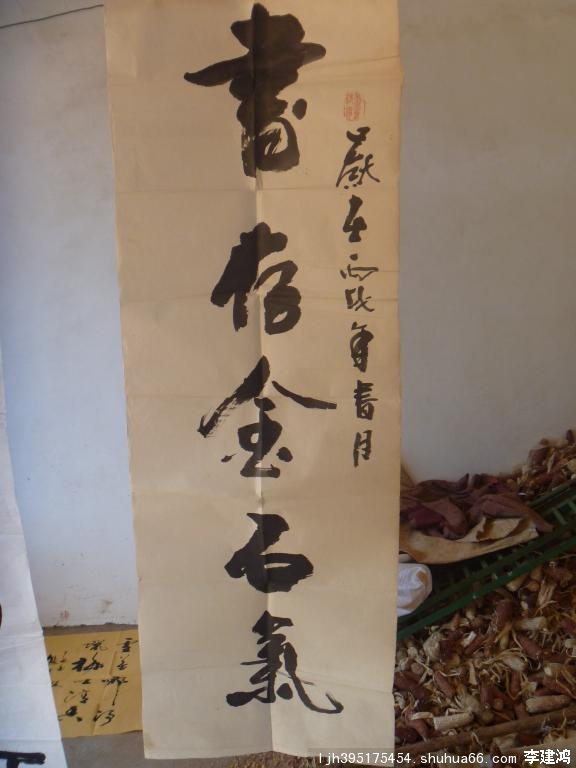 書存金石氣
歲在丙戌年春月
ljh395175454. shuhua66. com 李建鸿